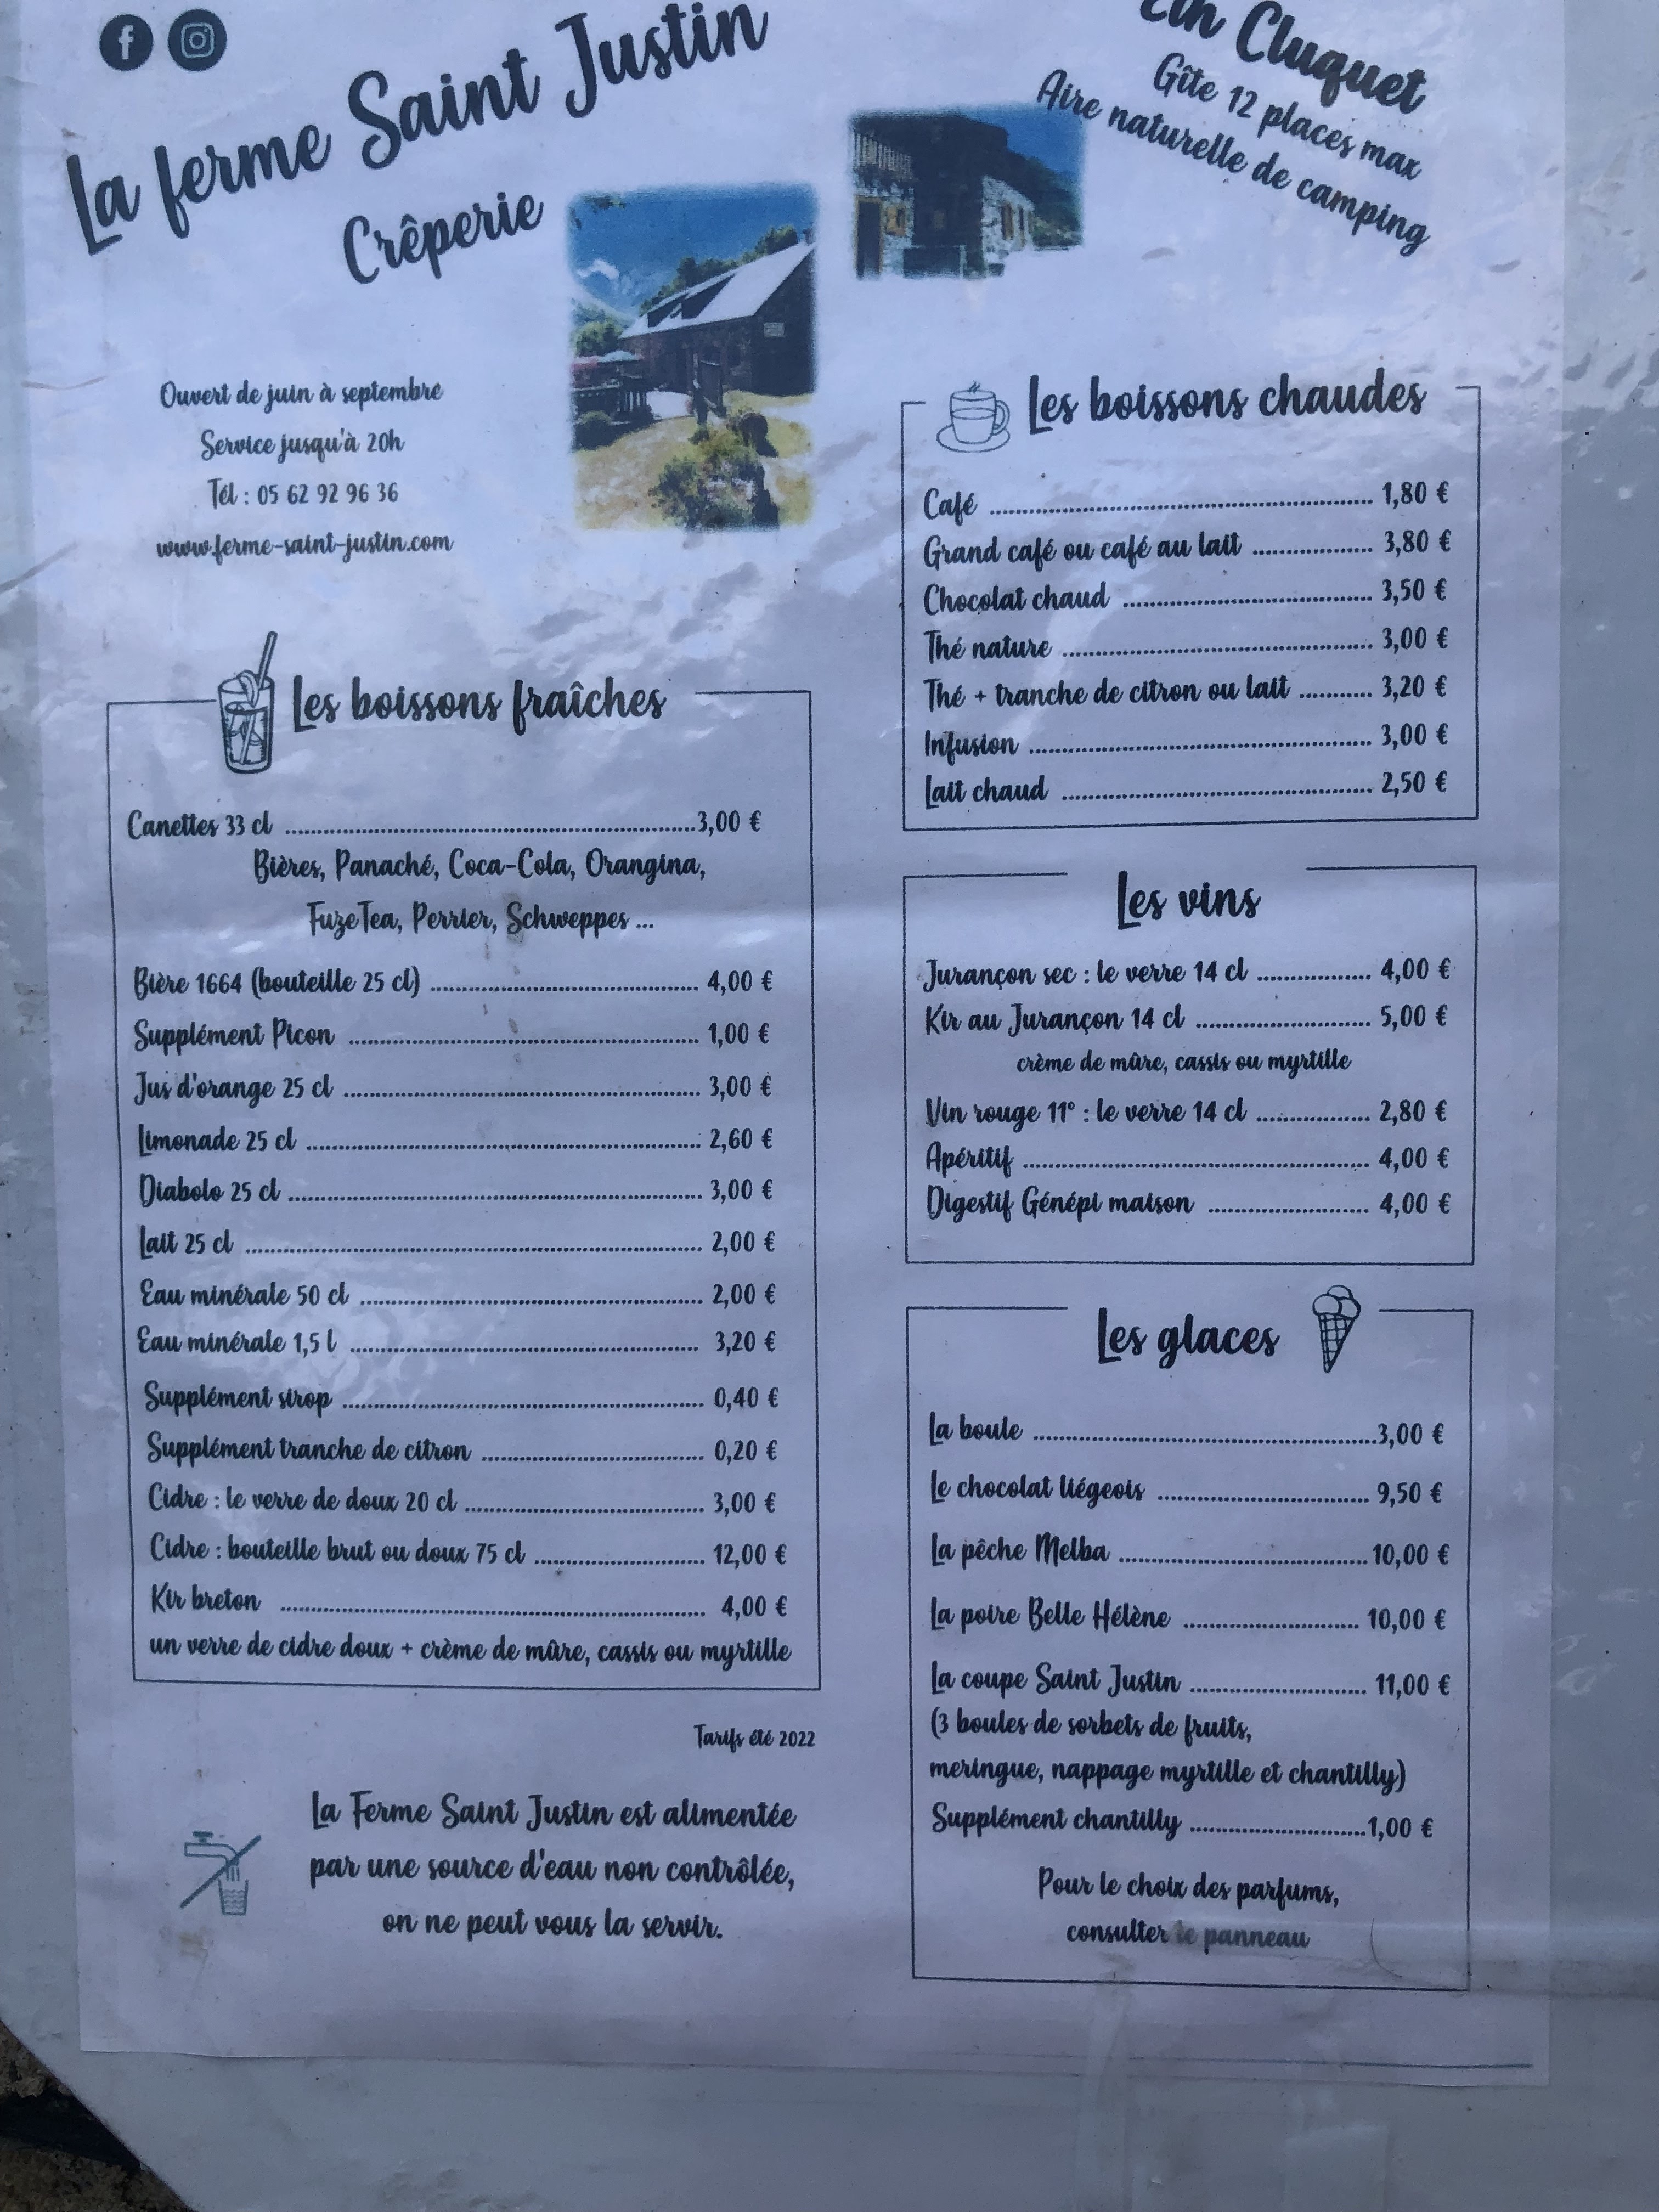 La ferme Saint Justin
Crêperie
Cluquet
Gîte 12 places max
Aire naturelle de camping
Ouvert de juin à septembre
Service jusqu'à 20h
Tél : 05 62 92 96 36
www.ferme-saint-justin.com
Les boissons fraîches
Canettes 33 cl ........ 3,00 €
Bières, Panaché, Coca-Cola, Orangina,
FuzeTea, Perrier, Schweppes ...
Bière 1664 (bouteille 25 cl) ........ 4,00 €
Supplément Picon ........ 1,00 €
Jus d'orange 25 cl ........ 3,00 €
Limonade 25 cl ........ 2,60 €
Diabolo 25 cl ........ 3,00 €
Lait 25 cl ........ 2,00 €
Eau minérale 50 cl ........ 2,00 €
Eau minérale 1,5 l ........ 3,20 €
Supplément sirop ........ 0,40 €
Supplément tranche de citron ........ 0,20 €
Cidre : le verre de doux 20 cl ........ 3,00 €
Cidre : bouteille brut ou doux 75 cl ........ 12,00 €
Kir breton ........ 4,00 €
un verre de cidre doux + crème de mûre, cassis ou myrtille
Tarifs été 2022
La Ferme Saint Justin est alimentée
par une source d'eau non contrôlée,
on ne peut vous la servir.
Les boissons chaudes
Café ........ 1,80 €
Grand café ou café au lait ........ 3,80 €
Chocolat chaud ........ 3,50 €
Thé nature ........ 3,00 €
Thé + tranche de citron ou lait ........ 3,20 €
Infusion ........ 3,00 €
Lait chaud ........ 2,50 €
Les vins
Jurançon sec : le verre 14 cl ........ 4,00 €
Kir au Jurançon 14 cl ........ 5,00 €
crème de mûre, cassis ou myrtille
Vin rouge 11° : le verre 14 cl ........ 2,80 €
Apéritif ........ 4,00 €
Digestif Génépi maison ........ 4,00 €
Les glaces
La boule ........ 3,00 €
Le chocolat liégeois ........ 9,50 €
La pêche Melba ........ 10,00 €
La poire Belle Hélène ........ 10,00 €
La coupe Saint Justin ........ 11,00 €
(3 boules de sorbets de fruits,
meringue, nappage myrtille et chantilly)
Supplément chantilly ........ 1,00 €
Pour le choix des parfums,
consulter le panneau